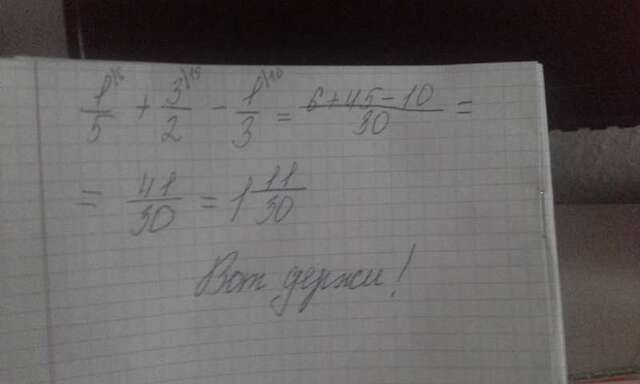 1\6/5 + 3\15/2 - 1\10/3 = 6+45-10/30 =
= 41/30 = 1 11/30
Вот держи!